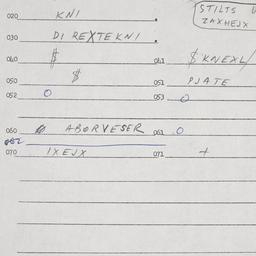 STILTS
ZAXHEJX
020 KNI .
030 DI REXTEKNI .
040 $ 041 $ KNEXL/
050 $ 051 PJATE
052 O 053 O
060 ABORVESER 061 O
062
070 IXEJX 071 +